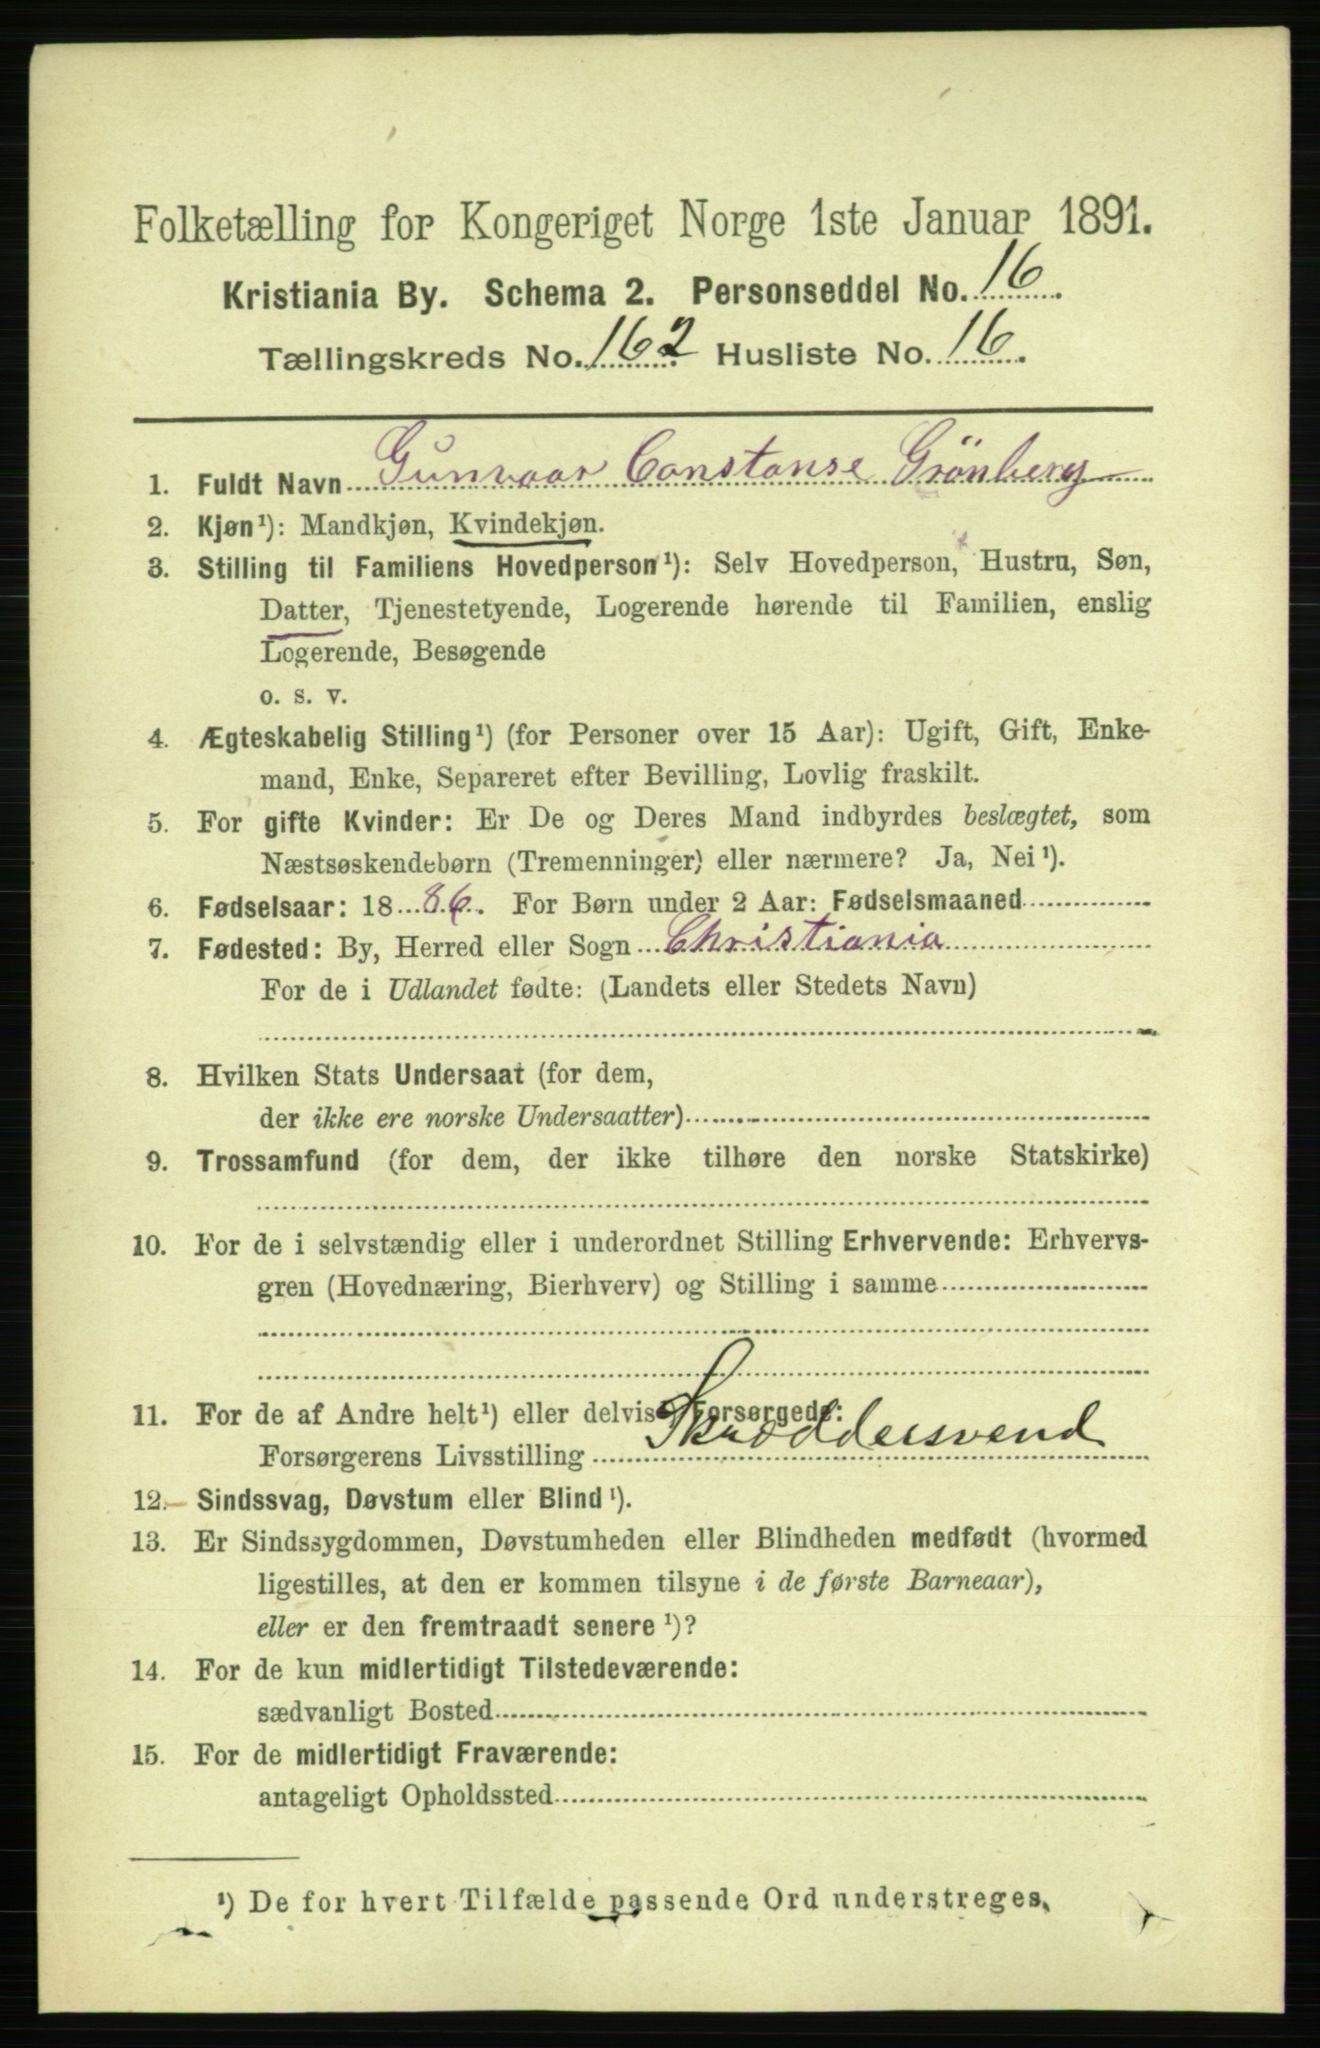 Folketælling for Kongeriget Norge 1ste Januar 1891.
Kristiania By. Schema 2. Personseddel No. 16.
Tællingskreds No. 162 Husliste No. 16.
1. Fuldt Navn Gunvaar Constanse Grönberg
2. Kjøn¹): Mandkjøn, Kvindekjøn.
3. Stilling til Familiens Hovedperson¹): Selv Hovedperson, Hustru, Søn,
Datter, Tjenestetyende, Logerende hørende til Familien, enslig
Logerende, Besøgende
o. s. v.
4. Ægteskabelig Stilling¹) (for Personer over 15 Aar): Ugift, Gift, Enke-
mand, Enke, Separeret efter Bevilling, Lovlig fraskilt.
5. For gifte Kvinder: Er De og Deres Mand indbyrdes beslægtet, som
Næstsøskendebørn (Tremenninger) eller nærmere? Ja, Nei¹).
6. Fødselsaar: 1886. For Børn under 2 Aar: Fødselsmaaned
7. Fødested: By, Herred eller Sogn Christiania
For de i Udlandet fødte: (Landets eller Stedets Navn)
8. Hvilken Stats Undersaat (for dem,
der ikke ere norske Undersaatter)
9. Trossamfund (for dem, der ikke tilhøre den norske Statskirke)
10. For de i selvstændig eller i underordnet Stilling Erhvervende: Erhvervs-
gren (Hovednæring, Bierhverv) og Stilling i samme
11. For de af Andre helt¹) eller delvis Forsørgede:
Forsørgerens Livsstilling Skræddersvend
12. Sindssvag, Døvstum eller Blind¹).
13. Er Sindssygdommen, Døvstumheden eller Blindheden medfødt (hvormed
ligestilles, at den er kommen tilsyne i de første Barneaar),
eller er den fremtraadt senere¹)?
14. For de kun midlertidigt Tilstedeværende:
sædvanligt Bosted
15. For de midlertidigt Fraværende:
antageligt Opholdssted
¹) De for hvert Tilfælde passende Ord understreges.